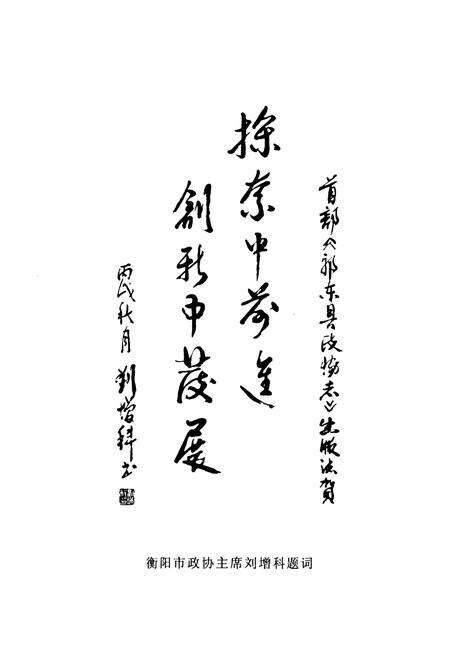 首部《祁东县政协志》出版志贺
探索中前進
創新中發展
丙戌秋月 劉增科书
衡阳市政协主席刘增科题词